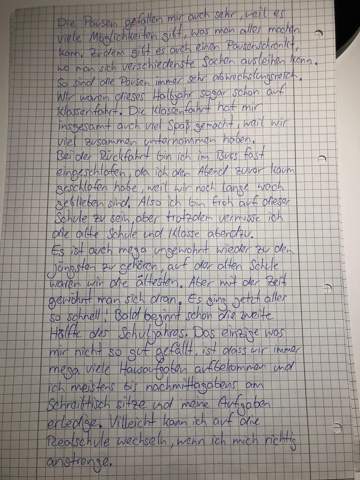 Die Pausen gefallen mir auch sehr, weil es
viele Möglichkeiten gibt, was man alles machen
kann. Zudem gibt es auch einen Pausenschrank,
wo man sich verschiedenste Sachen ausleihen kann.
So sind die Pausen immer sehr abwechslungsreich.
Wir waren dieses Halbjahr sogar schon auf
Klassenfahrt. Die Klassenfahrt hat mir
insgesamt auch viel Spaß gemacht, weil wir
viel zusammen unternommen haben.
Bei der Rückfahrt bin ich im Buss fast
eingeschlafen, da ich den Abend zuvor kaum
geschlafen habe, weil wir noch lange wach
geblieben sind. Also ich bin froh auf dieser
Schule zu sein, aber trotzdem vermisse ich
die alte Schule und Klasse abendzu.
Es ist auch mega ungewohnt wieder zu den
jüngsten zu gehören, auf der alten Schule
waren wir die ältesten. Aber mit der Zeit
gewöhnt man sich dran. Es ging jetzt alles
so schnell! Bald beginnt schon die zweite
Hälfte des Schuljahres. Das einzige was
mir nicht so gut gefällt, ist dass wir immer
mega viele Hausaufgaben aufbekommen und
ich meistens bis nachmittagabens am
Schreibtisch sitze und meine Aufgaben
erledige. Villeicht kann ich auf die
Realschule wechseln, wenn ich mich richtig
anstrenge.